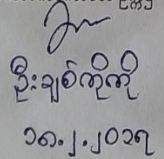 ဦးချစ်ကိုကို
၁၈.၂.၂၀၁၅